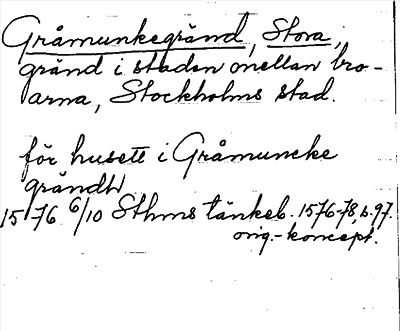 Gråmunkegränd, Stora,
gränd i staden mellan bro-
arna, Stockholms stad.
för husett i Gråmuncke
grändh
1576 6/10 Sthms tänkeb. 1576-78, s. 97.
orig.-koncept.